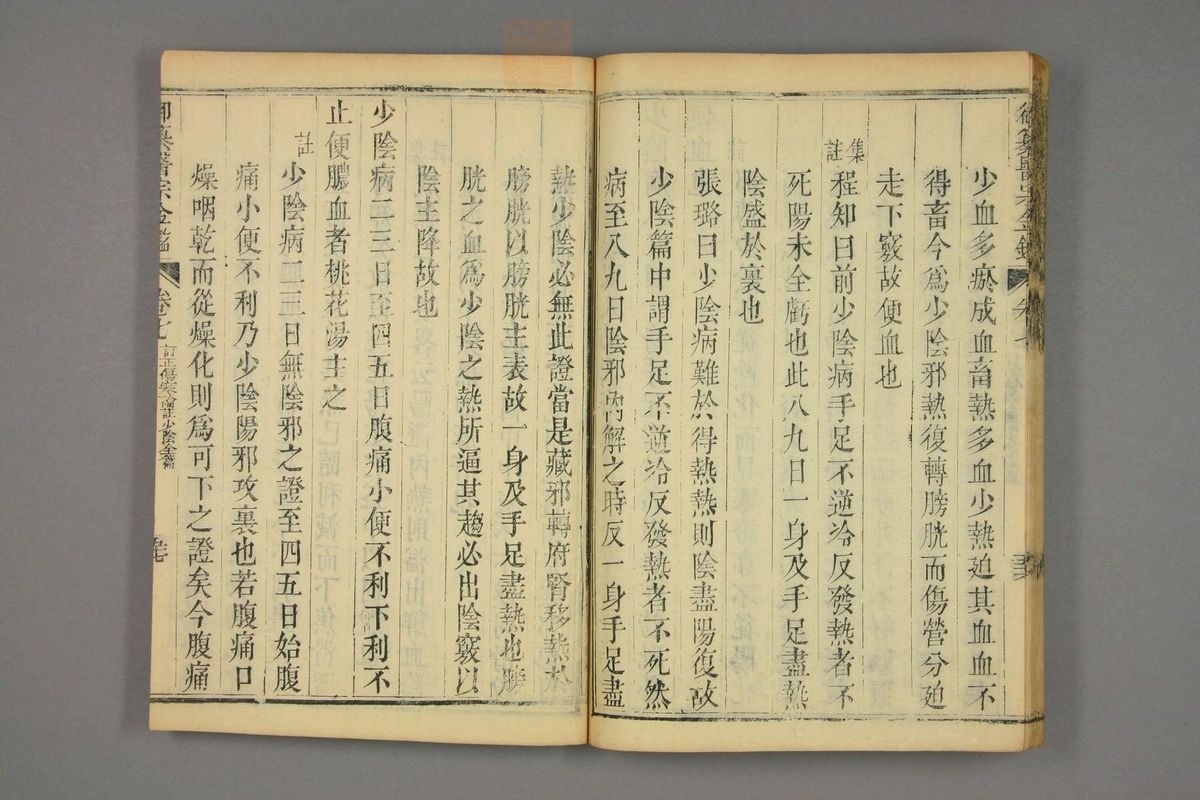 少血多瘀成血畜熱多血少熱廹其血血不
得畜今爲少陰邪熱復轉膀胱而傷營分廹
走下竅故便血也
集註程知曰前少陰病手足不逆冷反發熱者不
死陽未全虧也此八九日一身及手足盡熱
陰盛於裏也
張璐曰少陰病難於得熱熱則陰盡陽復故
少陰篇中謂手足不逆冷反發熱者不死然
病至八九日陰邪內解之時反一身手足盡
熱少陰必無此證當是藏邪轉府腎移熱於
膀胱以膀胱主表故一身及手足盡熱也膀
胱之血爲少陰之熱所逼其趨必出陰竅以
陰主降故也
少陰病二三日至四五日腹痛小便不利下利不
止便膿血者桃花湯主之
註少陰病二三日無陰邪之證至四五日始腹
痛小便不利乃少陰陽邪攻裏也若腹痛口
燥咽乾而從燥化則爲可下之證矣今腹痛
御纂醫宗金鑑 卷七 訂正傷寒論註少陰全篇